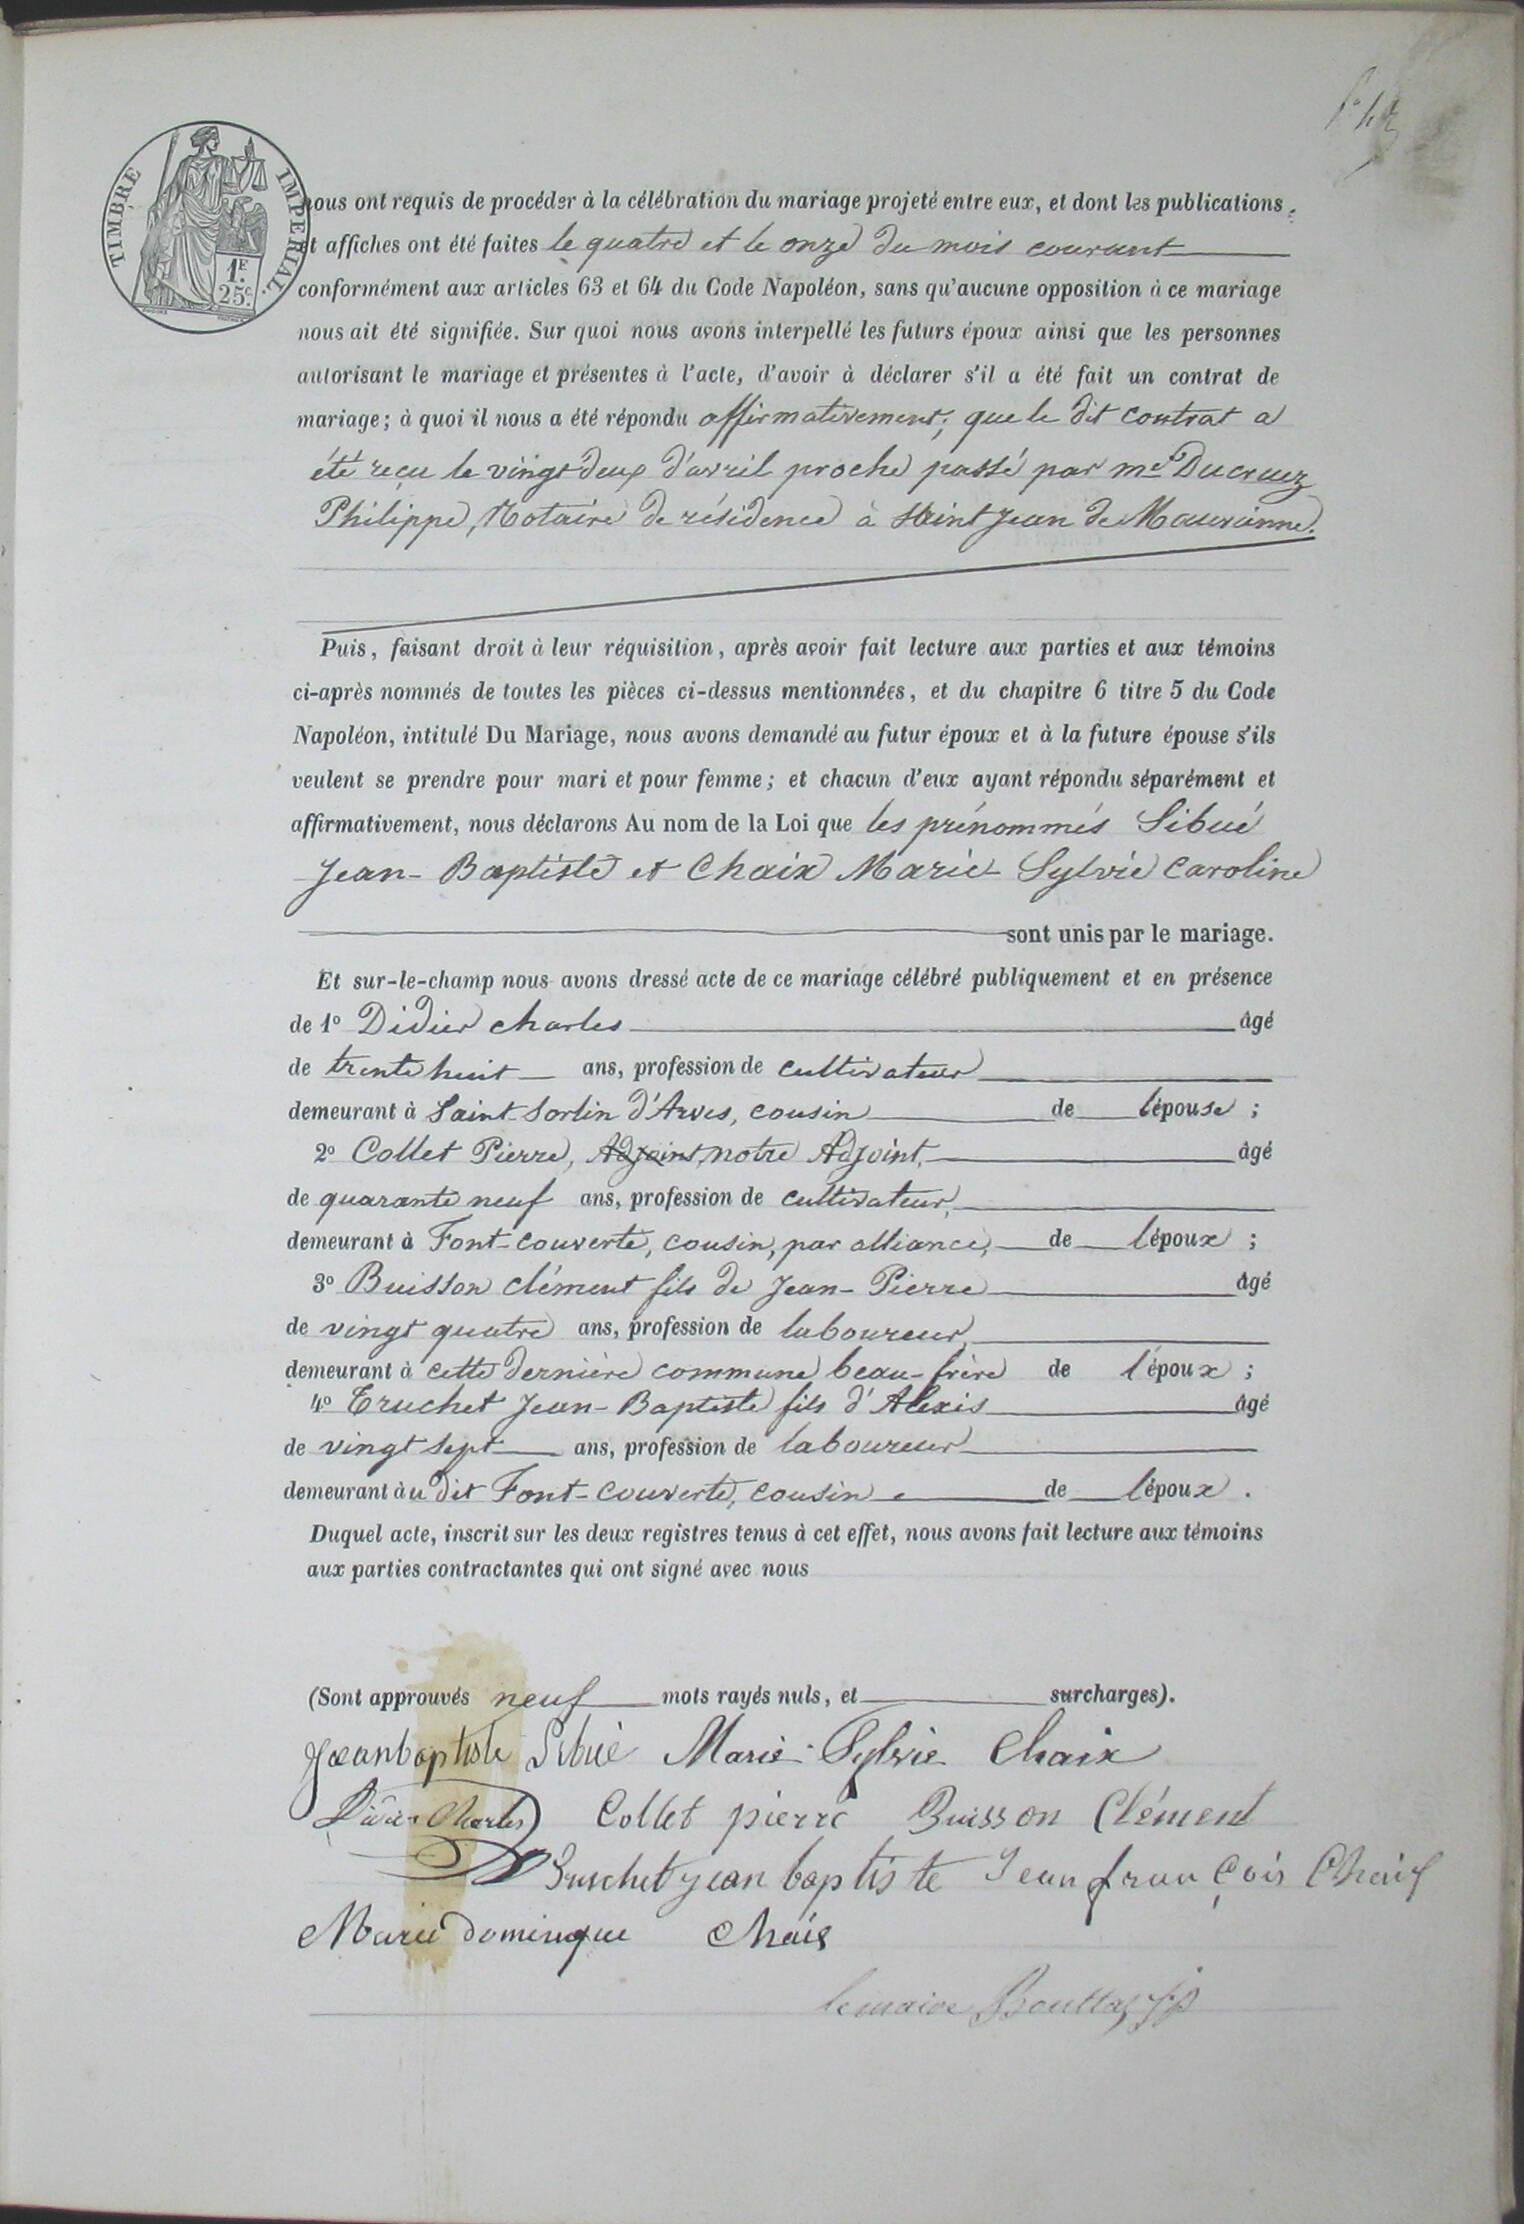 TIMBRE IMPERIAL.
1F
25c.
nous ont requis de procéder à la célébration du mariage projeté entre eux, et dont les publications
et affiches ont été faites le quatre et le onze du mois courant
conformément aux articles 63 et 64 du Code Napoléon, sans qu'aucune opposition à ce mariage
nous ait été signifiée. Sur quoi nous avons interpellé les futurs époux ainsi que les personnes
autorisant le mariage et présentes à l'acte, d'avoir à déclarer s'il a été fait un contrat de
mariage; à quoi il nous a été répondu affirmativement; que le dit contrat a
été reçu le vingt deux d'avril proche passé par me Ducruez
Philippe, Notaire de résidence à Saint Jean de Maurienne.
Puis, faisant droit à leur réquisition, après avoir fait lecture aux parties et aux témoins
ci-après nommés de toutes les pièces ci-dessus mentionnées, et du chapitre 6 titre 5 du Code
Napoléon, intitulé Du Mariage, nous avons demandé au futur époux et à la future épouse s'ils
veulent se prendre pour mari et pour femme; et chacun d'eux ayant répondu séparément et
affirmativement, nous déclarons Au nom de la Loi que les prénommés Sibué
Jean-Baptiste et Chaix Marie Sylvie Caroline
sont unis par le mariage.
Et sur-le-champ nous avons dressé acte de ce mariage célébré publiquement et en présence
de 1o Didier Charles âgé
de trente huit ans, profession de cultivateur
demeurant à Saint Sorlin d'Arves, cousin de l'épouse ;
2o Collet Pierre, Adjoint, notre Adjoint, âgé
de quarante neuf ans, profession de cultivateur,
demeurant à Font-couverte, cousin, par alliance, de l'époux ;
3o Buisson clément fils de Jean-Pierre âgé
de vingt quatre ans, profession de laboureur,
demeurant à cette dernière commune beau-frère de l'époux ;
4o Truchet Jean-Baptiste fils d'Alexis âgé
de vingt sept ans, profession de laboureur
demeurant àu dit Font-couverte, cousin de l'époux .
Duquel acte, inscrit sur les deux registres tenus à cet effet, nous avons fait lecture aux témoins
aux parties contractantes qui ont signé avec nous
(Sont approuvés neuf mots rayés nuls, et surcharges).
Jeanbaptiste Sibué Marie Sylvie Chaix
Didier Charles Collet pierre Buisson Clément
Truchet jean baptiste Jean françois Chaix
Marie dominique Chaix
le maire